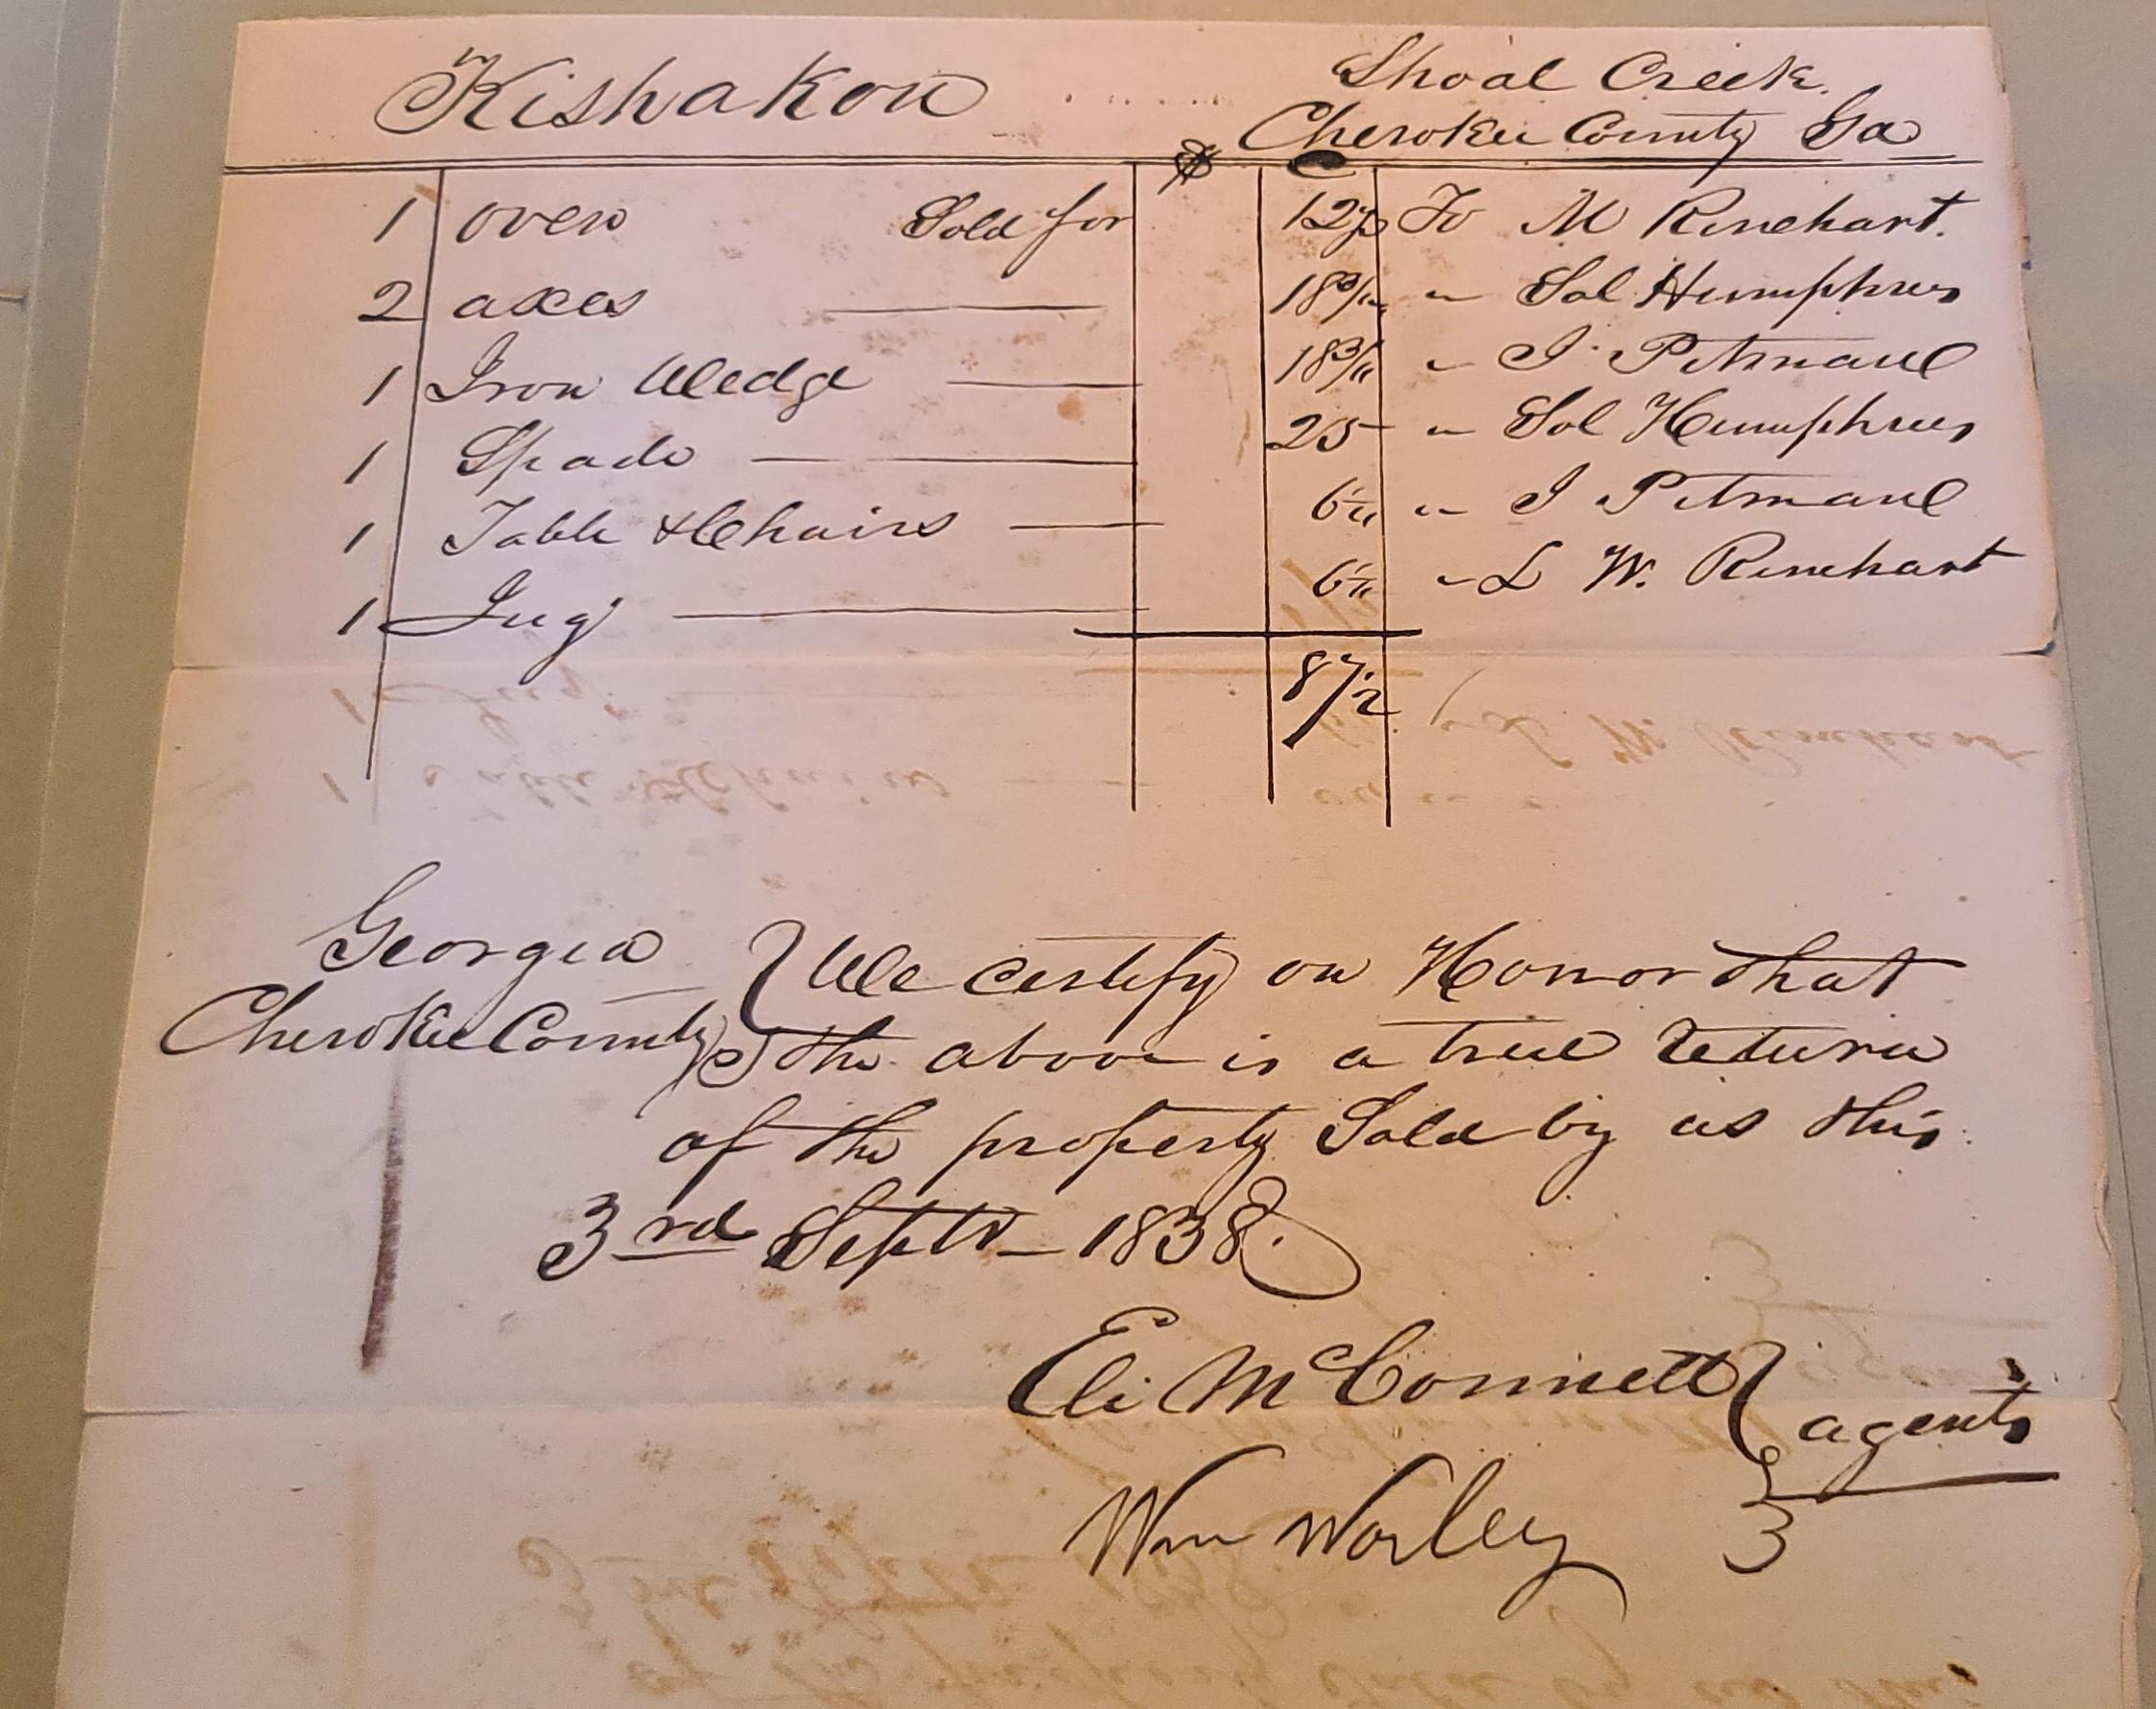 Kishakon ...... Shoal Creek.
Cherokee County Ga
$ C
1 oven Sold for 12½ To M Rinehart.
2 axes — 18¾ " Sol Humphries
1 Iron Wedge — 18¾ " I. Pitmanl
1 Spade — 25 " Sol Humphries
1 Table & Chairs — 6¼ " I Pitmanl
1 Jug — 6¼ " L W. Rinehart
87½
Georgia } We certify on Honor that
Cherokee County } the above is a true return
of the property Sold by us this
3rd Septr – 1838.
Eli McConnell } agents
Wm Worley }